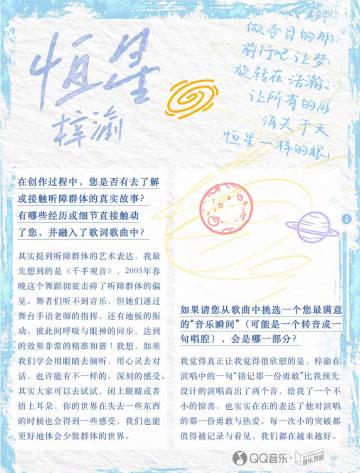 恒星
梓渝
做夺目的那
前行吧 让梦
旋转在浩瀚
让所有的
消失于天
恒星一样的眼
在创作过程中，您是否有去了解
或接触听障群体的真实故事？
有哪些经历或细节直接触动
了您，并融入了歌词歌曲中？
其实提到听障群体的艺术表达，我最
先想到的是《千手观音》，2005年春
晚这个舞蹈彻底击碎了听障群体的偏
见。舞者们听不到音乐，但她们通过
舞台手语老师的指挥，还有地板的振
动，彼此间呼吸与眼神的同步，达到
的效果非常的精准和谐！我想，如果
我们学会用眼睛去倾听，用心灵去对
话，也许能有不一样的、深刻的感受。
其实大家可以去试试，闭上眼睛或者
捂上耳朵，你的世界在失去一些东西
的时候也会得到一些感受，我们也能
更好地体会少数群体的世界。
如果请您从歌曲中挑选一个您最满意
的“音乐瞬间”（可能是一个转音或一
句唱腔），会是哪一部分？
我觉得真正让我觉得很欣慰的是，梓渝在
演唱中的一句“铭记那一份勇敢”比我预先
设计的演唱高出了两个音，给我了一个不
小的惊喜，也实实在在的表达了他对演唱
的那一份勇敢与热爱。每一次小的突破都
值得被记录与看见，我们都在越来越好。
QQ音乐·音乐资讯